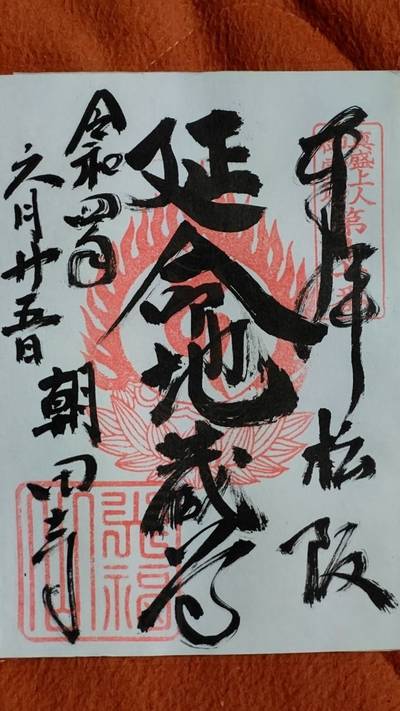 奉拝 松阪
真盛上人
延命地蔵尊
令和四年
六月廿五日
朝田寺